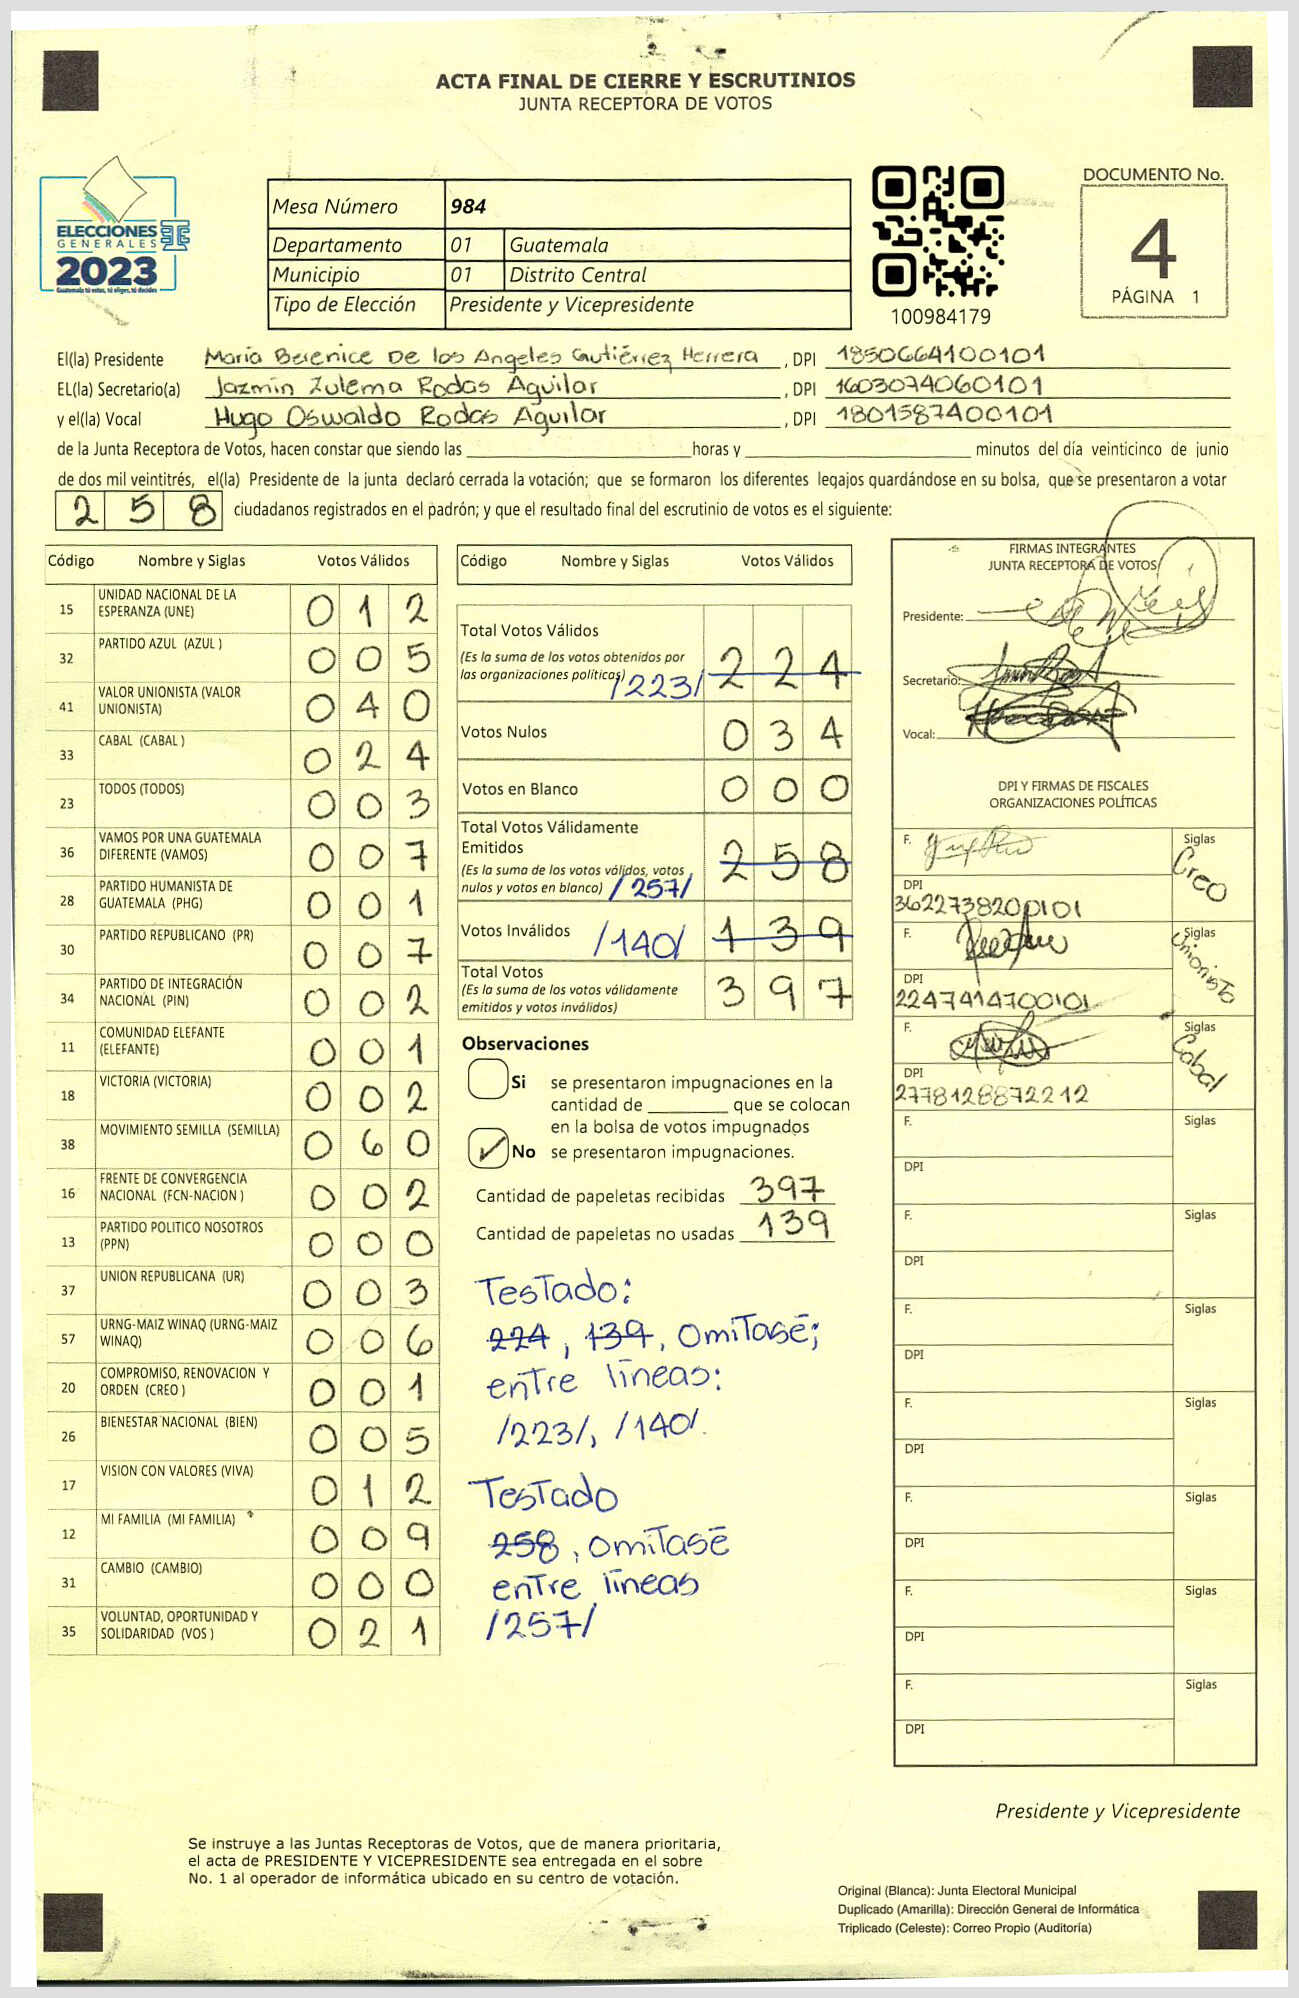 ACTA FINAL DE CIERRE Y ESCRUTINIOS
JUNTA RECEPTORA DE VOTOS
ELECCIONES
GENERALES
2023
Guatemala tú votas, tú eliges, tú decides
Mesa Número 984
Departamento 01 Guatemala
Municipio 01 Distrito Central
Tipo de Elección Presidente y Vicepresidente
100984179
DOCUMENTO No.
4
PÁGINA 1
El(la) Presidente María Berenice De los Angeles Gutiérrez Herrera , DPI 1850664100101
EL(la) Secretario(a) Jazmín Zulema Rodas Aguilar , DPI 1603074060101
y el(la) Vocal Hugo Oswaldo Rodas Aguilar , DPI 1801587400101
de la Junta Receptora de Votos, hacen constar que siendo las horas y minutos del día veinticinco de junio
de dos mil veintitrés, el(la) Presidente de la junta declaró cerrada la votación; que se formaron los diferentes legajos guardándose en su bolsa, que se presentaron a votar
258 ciudadanos registrados en el padrón; y que el resultado final del escrutinio de votos es el siguiente:
Código Nombre y Siglas Votos Válidos
15 UNIDAD NACIONAL DE LA ESPERANZA (UNE) 012
32 PARTIDO AZUL (AZUL ) 005
41 VALOR UNIONISTA (VALOR UNIONISTA) 040
33 CABAL (CABAL ) 024
23 TODOS (TODOS) 003
36 VAMOS POR UNA GUATEMALA DIFERENTE (VAMOS) 007
28 PARTIDO HUMANISTA DE GUATEMALA (PHG) 001
30 PARTIDO REPUBLICANO (PR) 007
34 PARTIDO DE INTEGRACIÓN NACIONAL (PIN) 002
11 COMUNIDAD ELEFANTE (ELEFANTE) 001
18 VICTORIA (VICTORIA) 002
38 MOVIMIENTO SEMILLA (SEMILLA) 060
16 FRENTE DE CONVERGENCIA NACIONAL (FCN-NACION ) 002
13 PARTIDO POLITICO NOSOTROS (PPN) 000
37 UNION REPUBLICANA (UR) 003
57 URNG-MAIZ WINAQ (URNG-MAIZ WINAQ) 006
20 COMPROMISO, RENOVACION Y ORDEN (CREO ) 001
26 BIENESTAR NACIONAL (BIEN) 005
17 VISION CON VALORES (VIVA) 012
12 MI FAMILIA (MI FAMILIA) 009
31 CAMBIO (CAMBIO) 000
35 VOLUNTAD, OPORTUNIDAD Y SOLIDARIDAD (VOS ) 021
Código Nombre y Siglas Votos Válidos
Total Votos Válidos
(Es la suma de los votos obtenidos por
las organizaciones políticas) /223/ 224
Votos Nulos 034
Votos en Blanco 000
Total Votos Válidamente
Emitidos
(Es la suma de los votos válidos, votos
nulos y votos en blanco) /257/ 258
Votos Inválidos /140/ 139
Total Votos
(Es la suma de los votos válidamente
emitidos y votos inválidos) 397
Observaciones
Si se presentaron impugnaciones en la
cantidad de que se colocan
en la bolsa de votos impugnados
No se presentaron impugnaciones.
Cantidad de papeletas recibidas 397
Cantidad de papeletas no usadas 139
Testado:
224, 139, omitase;
entre líneas:
/223/, /140/.
Testado
258, omitase
entre líneas
/257/
FIRMAS INTEGRANTES
JUNTA RECEPTORA DE VOTOS
Presidente:
Secretario:
Vocal:
DPI Y FIRMAS DE FISCALES
ORGANIZACIONES POLÍTICAS
F. Siglas Creo
DPI 3622738200101
F. Siglas Unionista
DPI 2247414700101
F. Siglas Cabal
DPI 2778128872212
F. Siglas
DPI
F. Siglas
DPI
F. Siglas
DPI
F. Siglas
DPI
F. Siglas
DPI
F. Siglas
DPI
F. Siglas
DPI
Presidente y Vicepresidente
Se instruye a las Juntas Receptoras de Votos, que de manera prioritaria,
el acta de PRESIDENTE Y VICEPRESIDENTE sea entregada en el sobre
No. 1 al operador de informática ubicado en su centro de votación.
Original (Blanca): Junta Electoral Municipal
Duplicado (Amarilla): Dirección General de Informática
Triplicado (Celeste): Correo Propio (Auditoría)